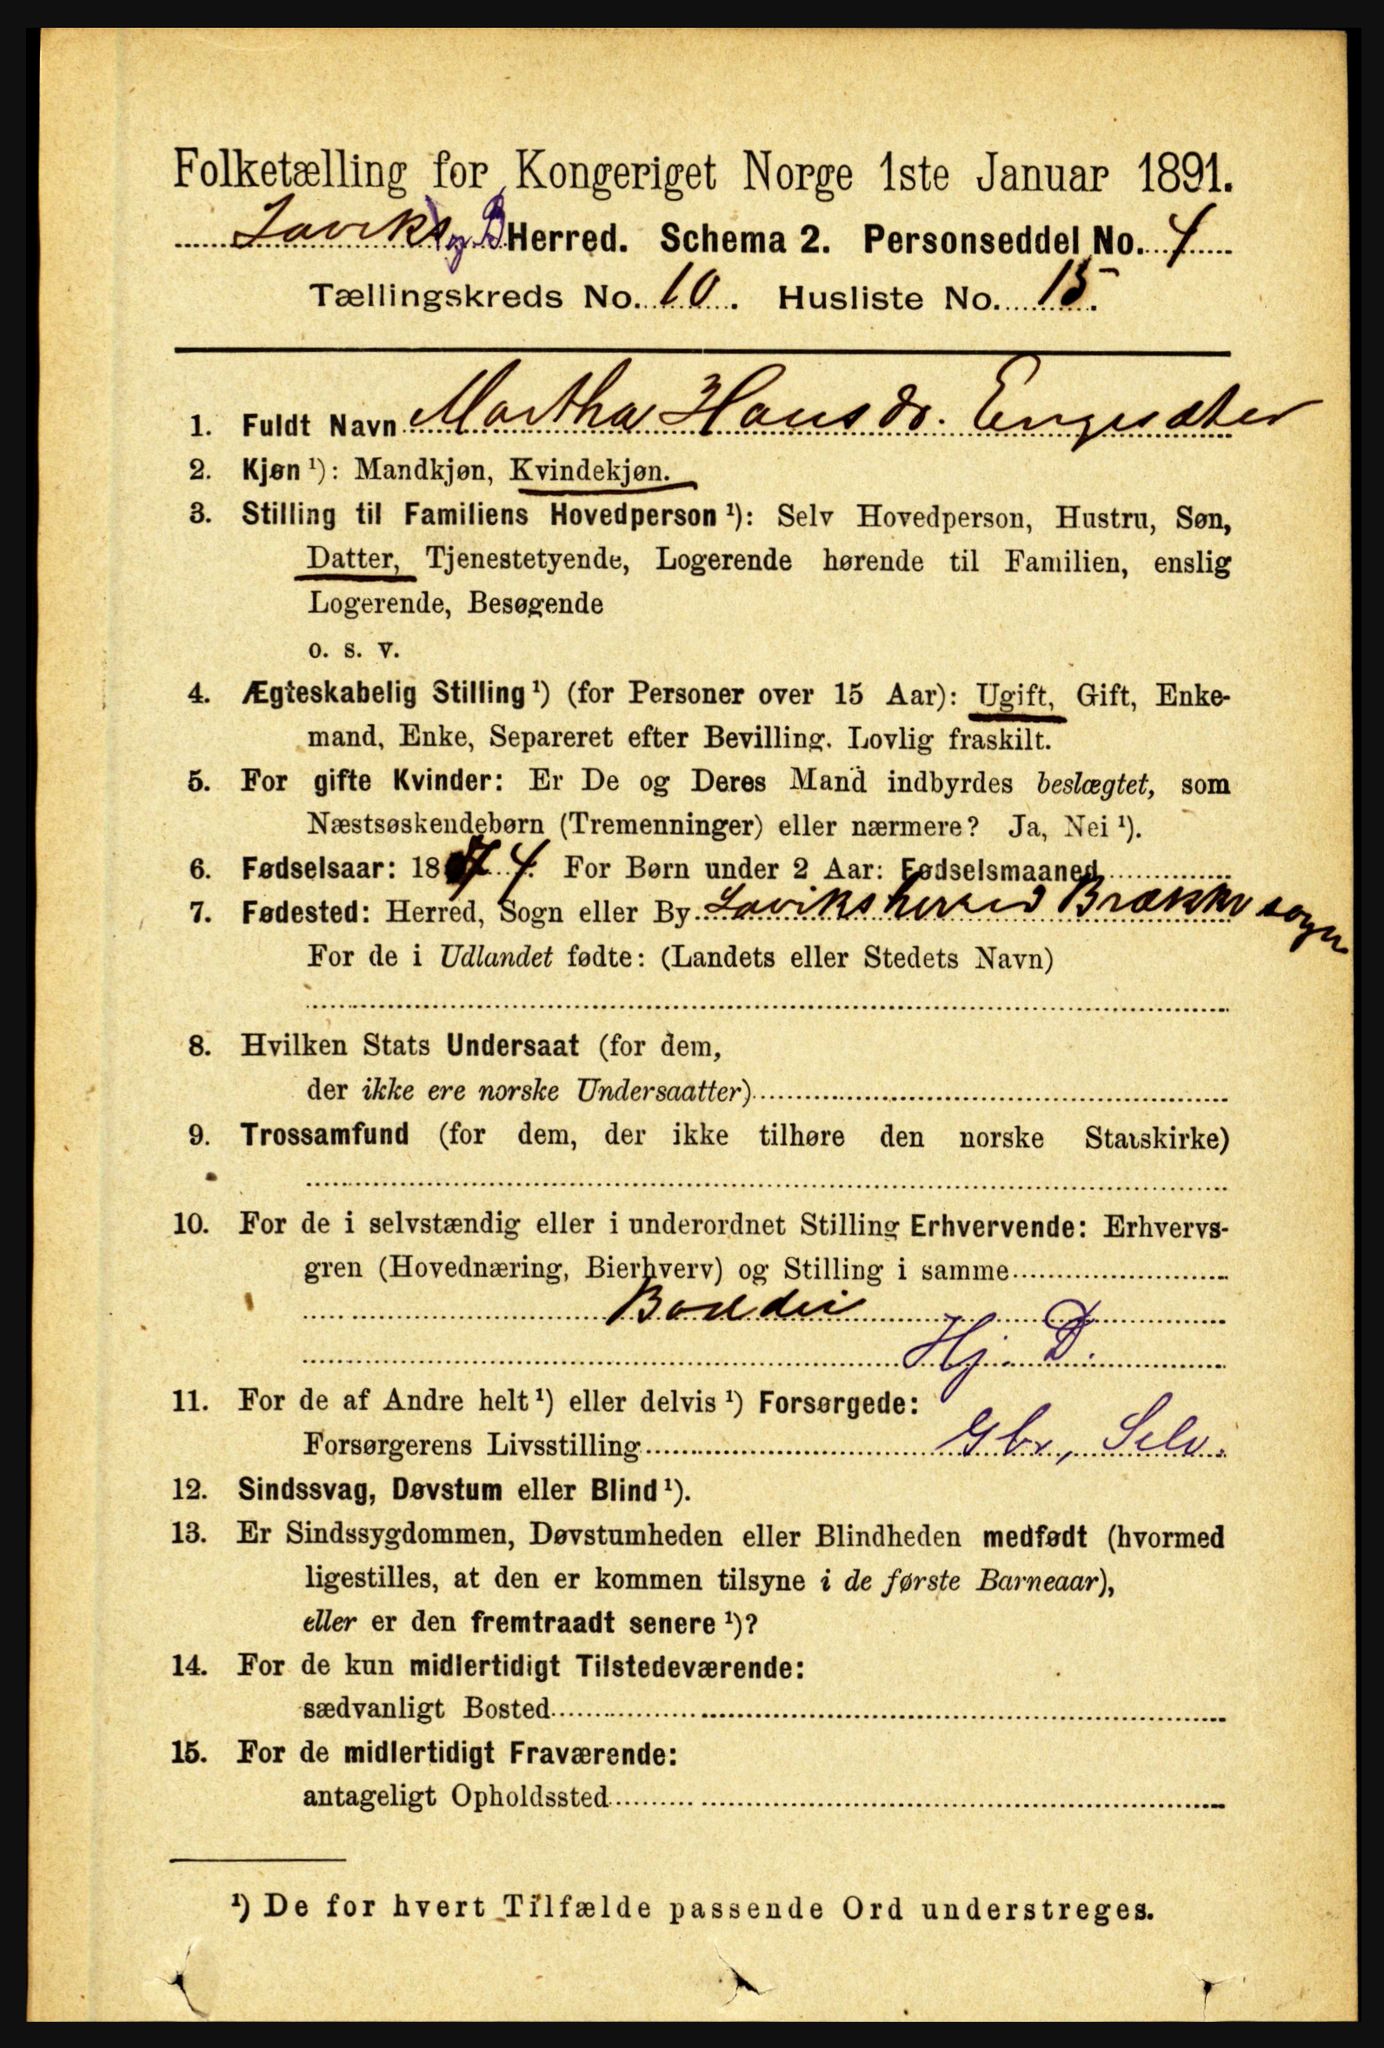 Folketælling for Kongeriget Norge 1ste Januar 1891.
Laviks og B Herred. Schema 2. Personseddel No. 4
Tællingskreds No. 10. Husliste No. 15.
1. Fuldt Navn Martha Hansdr. Engesæter
2. Kjøn ¹): Mandkjøn, Kvindekjøn.
3. Stilling til Familiens Hovedperson ¹): Selv Hovedperson, Hustru, Søn,
Datter, Tjenestetyende, Logerende hørende til Familien, enslig
Logerende, Besøgende
o. s. v.
4. Ægteskabelig Stilling ¹) (for Personer over 15 Aar): Ugift, Gift, Enke-
mand, Enke, Separeret efter Bevilling. Lovlig fraskilt.
5. For gifte Kvinder: Er De og Deres Mand indbyrdes beslægtet, som
Næstsøskendebørn (Tremenninger) eller nærmere? Ja, Nei ¹).
6. Fødselsaar: 1874. For Børn under 2 Aar: Fødselsmaaned
7. Fødested: Herred, Sogn eller By Laviksherred Brække sogn
For de i Udlandet fødte: (Landets eller Stedets Navn)
8. Hvilken Stats Undersaat (for dem,
der ikke ere norske Undersaatter)
9. Trossamfund (for dem, der ikke tilhøre den norske Statskirke)
10. For de i selvstændig eller i underordnet Stilling Erhvervende: Erhvervs-
gren (Hovednæring, Bierhverv) og Stilling i samme
Hj. D.
11. For de af Andre helt ¹) eller delvis ¹) Forsørgede:
Forsørgerens Livsstilling Gbr, Selv.
12. Sindssvag, Døvstum eller Blind ¹).
13. Er Sindssygdommen, Døvstumheden eller Blindheden medfødt (hvormed
ligestilles, at den er kommen tilsyne i de første Barneaar),
eller er den fremtraadt senere ¹)?
14. For de kun midlertidigt Tilstedeværende:
sædvanligt Bosted
15. For de midlertidigt Fraværende:
antageligt Opholdssted
¹) De for hvert Tilfælde passende Ord understreges.